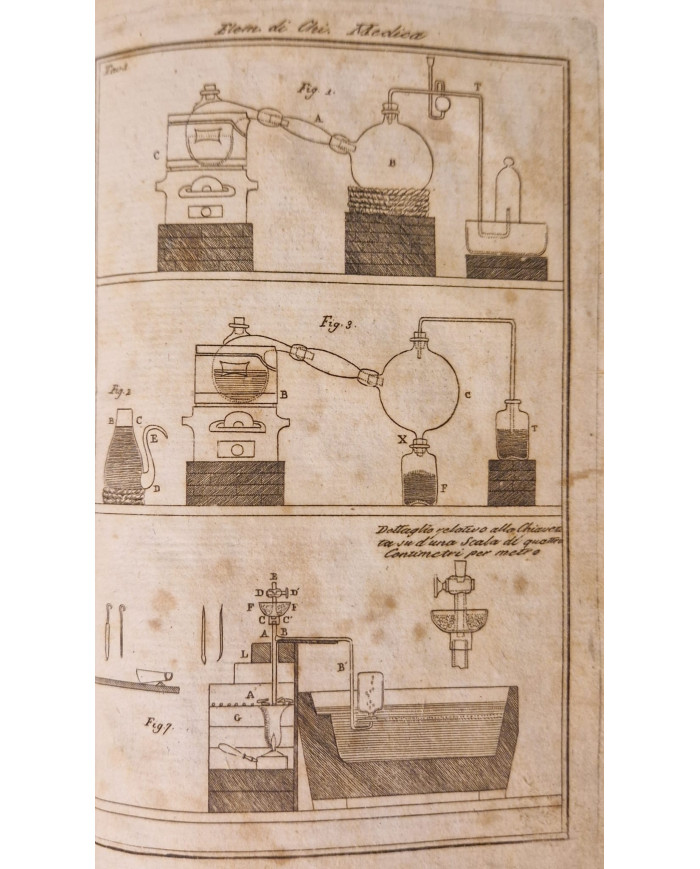 Elem. di Chi. Medica
Fig. 1.
A
T
C
B
Fig. 3.
Fig. 2
B C
E
D
B
C
X
F
T
Dettaglio relativo alla Chiavet
ta su d'una Scala di quattro
Centimetri per metro
E
D D'
F F
C C'
A B
L
B'
A'
G
Fig. 7.